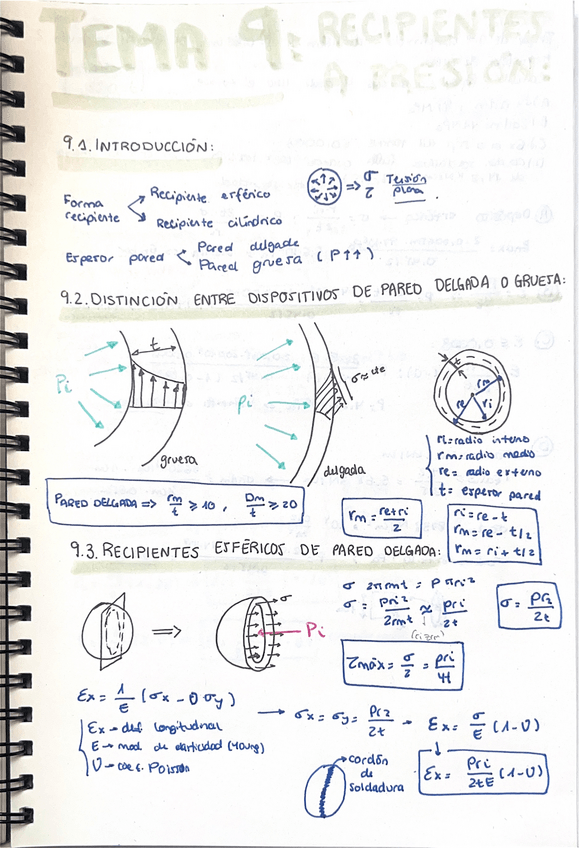 TEMA 9: RECIPIENTES
A PRESIÓN:
9.1. INTRODUCCIÓN:
Forma recipiente
Recipiente esférico
Recipiente cilíndrico
=> σ τ Tensión plana.
Espesor pared
Pared delgada
Pared gruesa (P↑↑)
9.2. DISTINCIÓN ENTRE DISPOSITIVOS DE PARED DELGADA O GRUESA:
Pi
t
gruesa
Pi
σ≈cte
delgada
t
rm
re
ri
ri=radio interno
rm=radio medio
re= radio externo
t= espesor pared
PARED DELGADA => rm/t ≥ 10 , Dm/t ≥ 20
rm = re+ri/2
ri=re-t
rm=re-t/2
rm=ri+t/2
9.3. RECIPIENTES ESFÉRICOS DE PARED DELGADA:
=>
σ
Pi
σ 2πrmt = P πri²
σ = pri²/2rmt ≈ pri/2t
(ri≈rm)
σ = pr2/2t
τmáx = σ/2 = pri/4t
εx = 1/E (σx - υσy)
εx → def. longitudinal
E → mod. de elasticidad (Young)
υ → coef. Poisson
→ σx = σy = pr2/2t → εx = σ/E (1-υ)
εx = pri/2tE (1-υ)
cordón
de
soldadura